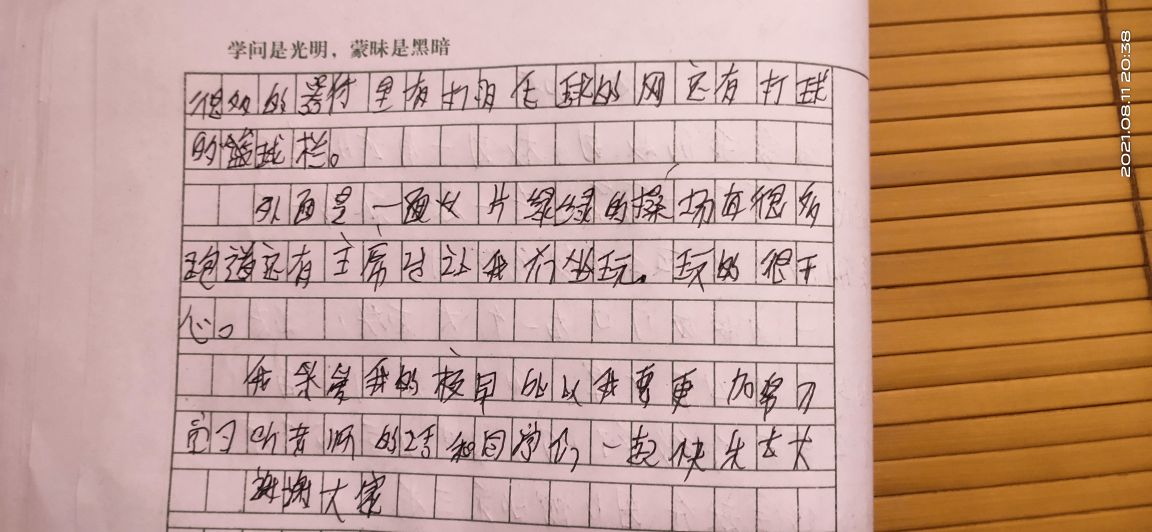 学问是光明，蒙昧是黑暗
很多的器材里有打羽毛球的网还有打球
的篮球栏。
外面是一面大片绿绿的操场有很多
跑道还有主席台让我们坐玩。玩的很开
心。
我来。我的校园所以我要更加努力
学习听老师的话和同学们一起快乐去大
谢谢大家
2021.08.11 20:38